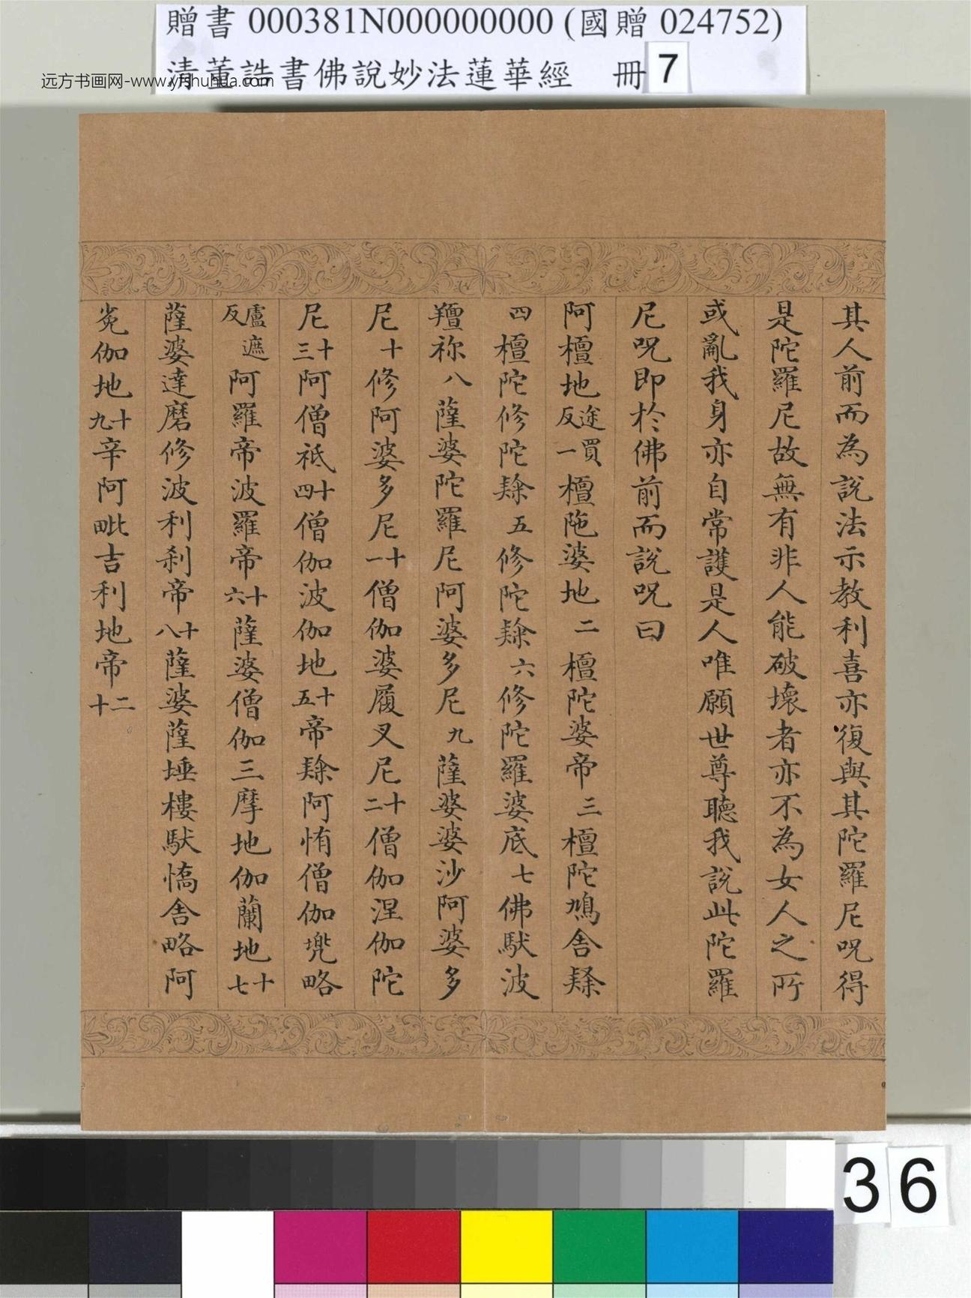 贈書 000381N000000000 (國贈 024752)
清董誥書佛說妙法蓮華經 冊 7
远方书画网-www.yfshuhua.com
其人前而為說法示教利喜亦復與其陀羅尼呪得
是陀羅尼故無有非人能破壞者亦不為女人之所
或亂我身亦自常護是人唯願世尊聽我說此陀羅
尼呪即於佛前而說呪曰
阿檀地途買反一檀陁婆地二檀陀婆帝三檀陀鳩舍隸
四檀陀修陀隸五修陀隸六修陀羅婆底七佛馱波
羶祢八薩婆陀羅尼阿婆多尼九薩婆婆沙阿婆多
尼十修阿婆多尼十一僧伽婆履叉尼十二僧伽涅伽陀
尼十三阿僧祇十四僧伽波伽地十五帝隸阿惰僧伽兠略
盧遮反阿羅帝波羅帝十六薩婆僧伽三摩地伽蘭地十七
薩婆達磨修波利刹帝十八薩婆薩埵樓馱憍舍略阿
㝹伽地十九辛阿毗吉利地帝二十
36